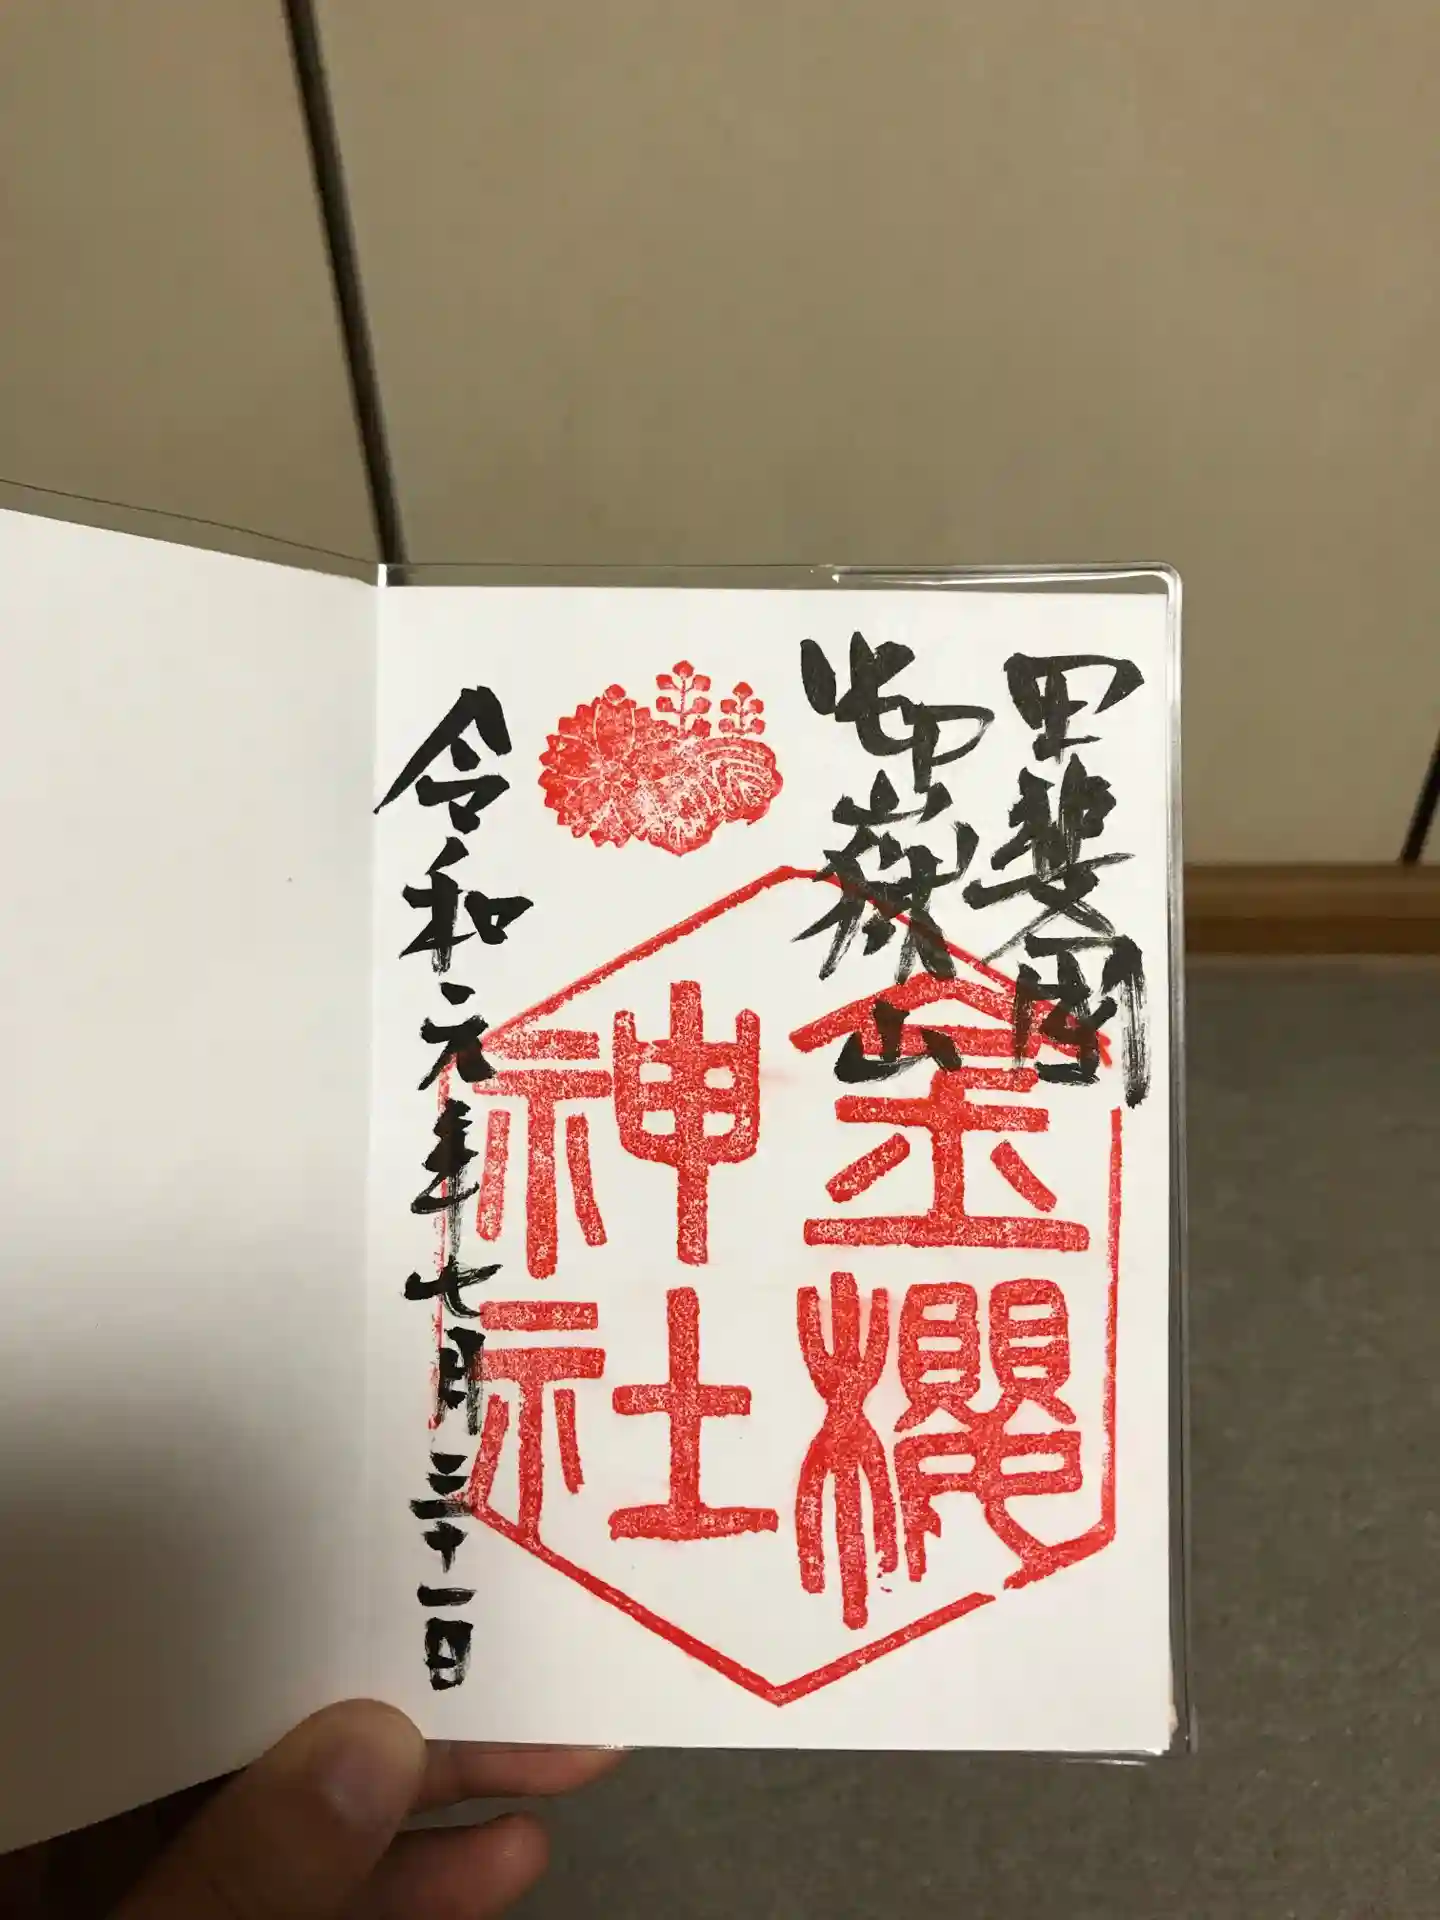 甲斐國
御嶽山
金櫻
神社
令和元年七月三十一日